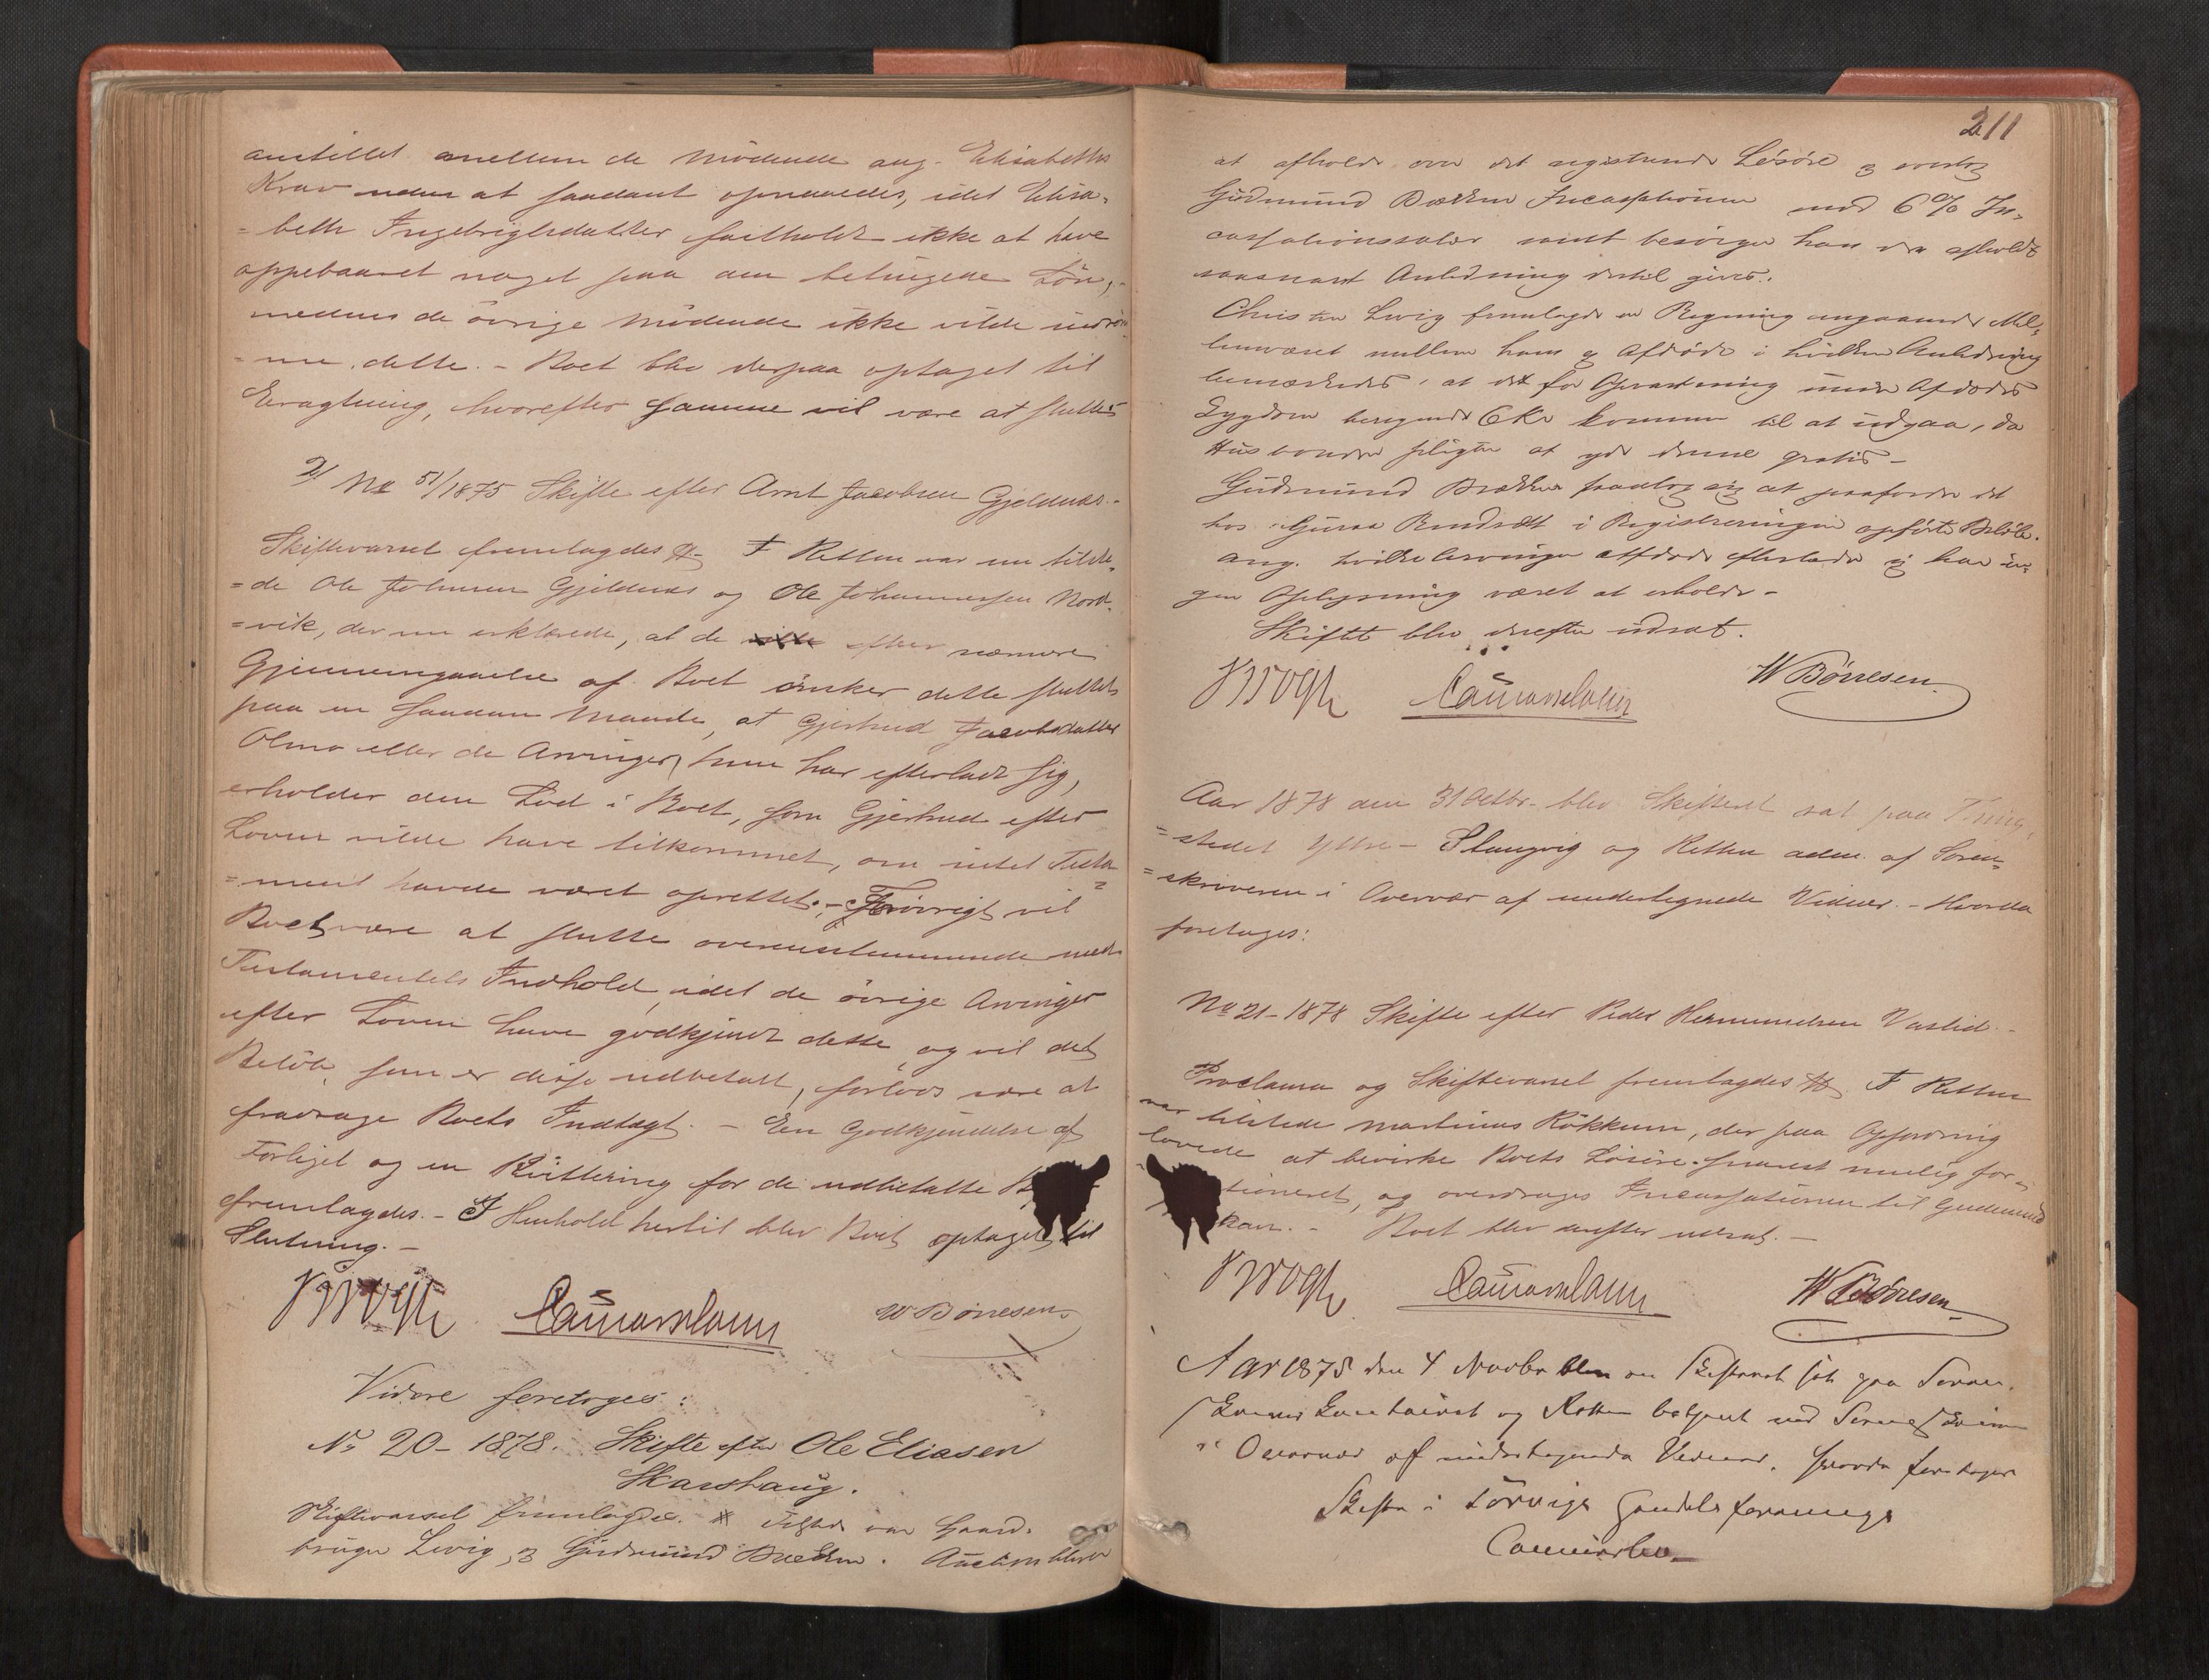 anstillet mellem de Mödende ang. Elisabeths
Krav uden at saadant opnaaedes, idet Elisa-
=beth Ingebrigtsdatter fastholdt ikke at have
oppebaaret noget paa den betingede Lön,-
medens de övrige Mödende ikke vilde indröm-
=me dette. - Boet blev derpaa optaget til
Eragtning, hvorefter samme vil være at slutte
2/ No 51/1875 Skifte efter Arnt Jacobsen Gjeldnæs.-
Skiftevarsel fremlagdes # I Retten var nu tilste-
=de Ole Johnsen Gjeldnæs og Ole Johannessen Nord-
=vik, der nu erklærede, at de efter nærmere
Gjennemgaaelse af Boet önsker dette sluttet
paa en saadan Maade, at Gjertrud Jacobsdatter
Olmo eller de Arvinger, hun har efterladt sig,
erholder den Lod i Boet, som Gjertrud efter
Loven vilde have tilkommet, om intet Testa-
=ment havde været oprettet; - Forövrigt vil
Boet være at slutte overensstemmende med
Testamentets Indhold, idet de övrige Arvinger
efter Loven have godkjendt dette, og vil det
Belöb, som er disse udbetalt, forlods være at
fradrage Boets Indtægt. - En Godkjendelse af
Forliget og en Kvittering for de udbetalte
fremlagdes. - I Henhold hertil blev Boet optaget til
Slutning. -
W Börresen
Videre foretoges:
No 20 - 1878. Skifte efter Ole Eliasen
Skarshaug.
Skiftevarsel fremlagdes. # Tilstede var Gaard-
bruger Lervig og Gudmund Brækken. Auction bliver
211
at afholde over det registrerede Lösöre og overtog
Gudmund Brækken Incassationen mod 6% In-
cassationssalær samt besörger han den afholdt
saasnart Anledning dertil gives.
Christen Lervig fremlagde en Regning angaaende Mel-
lemværet mellem ham og Afdöde i hvilken Anledning
bemærkedes, at det for Opvartning under Afdödes
Sygdom beregnede 6 Kr kommer til at udgaa, da
Husbonden pligter at yde denne gratis -
Gudmund Brækken paatog sig at paafordre det
hos Guraa Bendsæt i Registreringen opförte Belöb.
Ang. hvilke Arvinger Afdöde efterlader sig har in-
gen Oplysning været at erholde -
Skiftet blev derefter udsat.
W Börresen
Aar 1878 den 31 Octbr. blev Skifteret sat paa Thing-
=stedet Yttre-Stangvig og Retten adm. af Soren-
=skriveren i Overvær af undertegnede Vidner. - Hvorda
foretoges:
No 21 - 1878 Skifte efter Peder Hermundsen Vaslid. -
Proclama og Skiftevarsel fremlagdes # I Retten
var tilstede Martinus Rökkum, der paa Opfordring
lovede at bevirke Boets Lösöre snarest mulig for-
tioneret, og overdroges Incassationen til Gudmund
ken. - Boet blev derefter udsat. -
W Börresen
Aar 1878 den 4 Novbr blev en Skifteret sat paa Soren-
skriver Contoiret og Retten betjent ved Sorenskriveren
i Overvær af undertegnede Vidner. Hvorda foretoges
Skifte i Sörvigs Handelsforenings